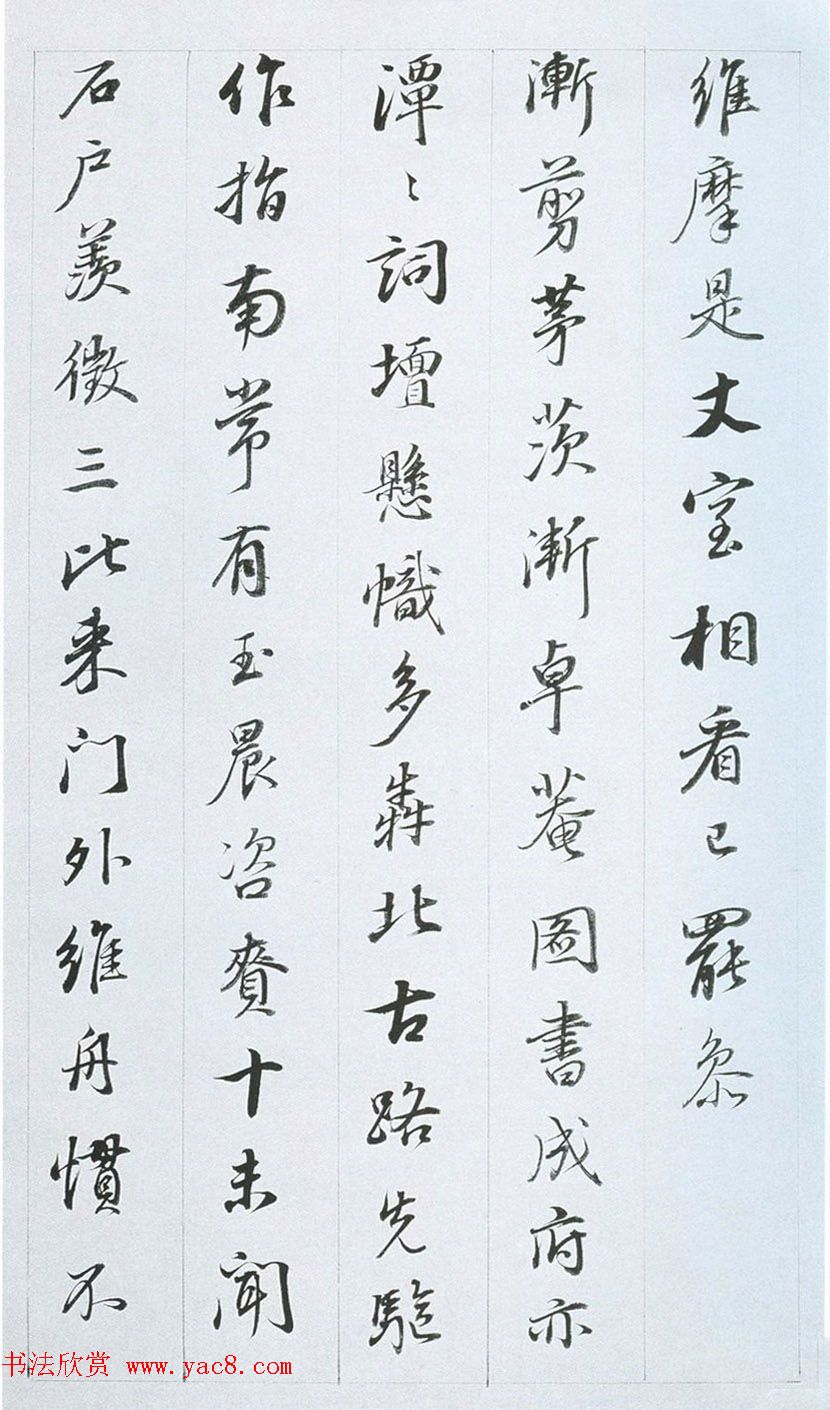 維摩是丈室相看已罷叅
漸剪茅茨漸卓菴圖書成府亦
潭〻詞壇懸幟多犇北古路先驅
作指南常有玉晨咨賚十未聞
石户羨徵三比来门外維舟慣不
书法欣赏 www.yac8.com